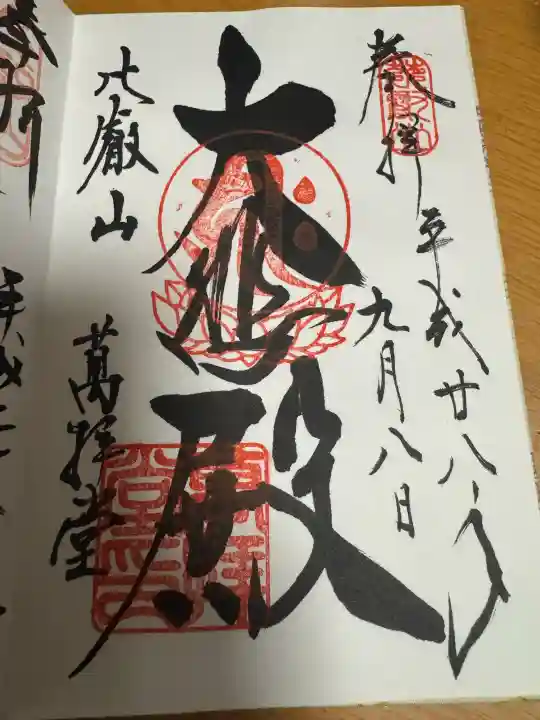 奉拝
平成廿八年
九月八日
大悲殿
比叡山
萬拝堂